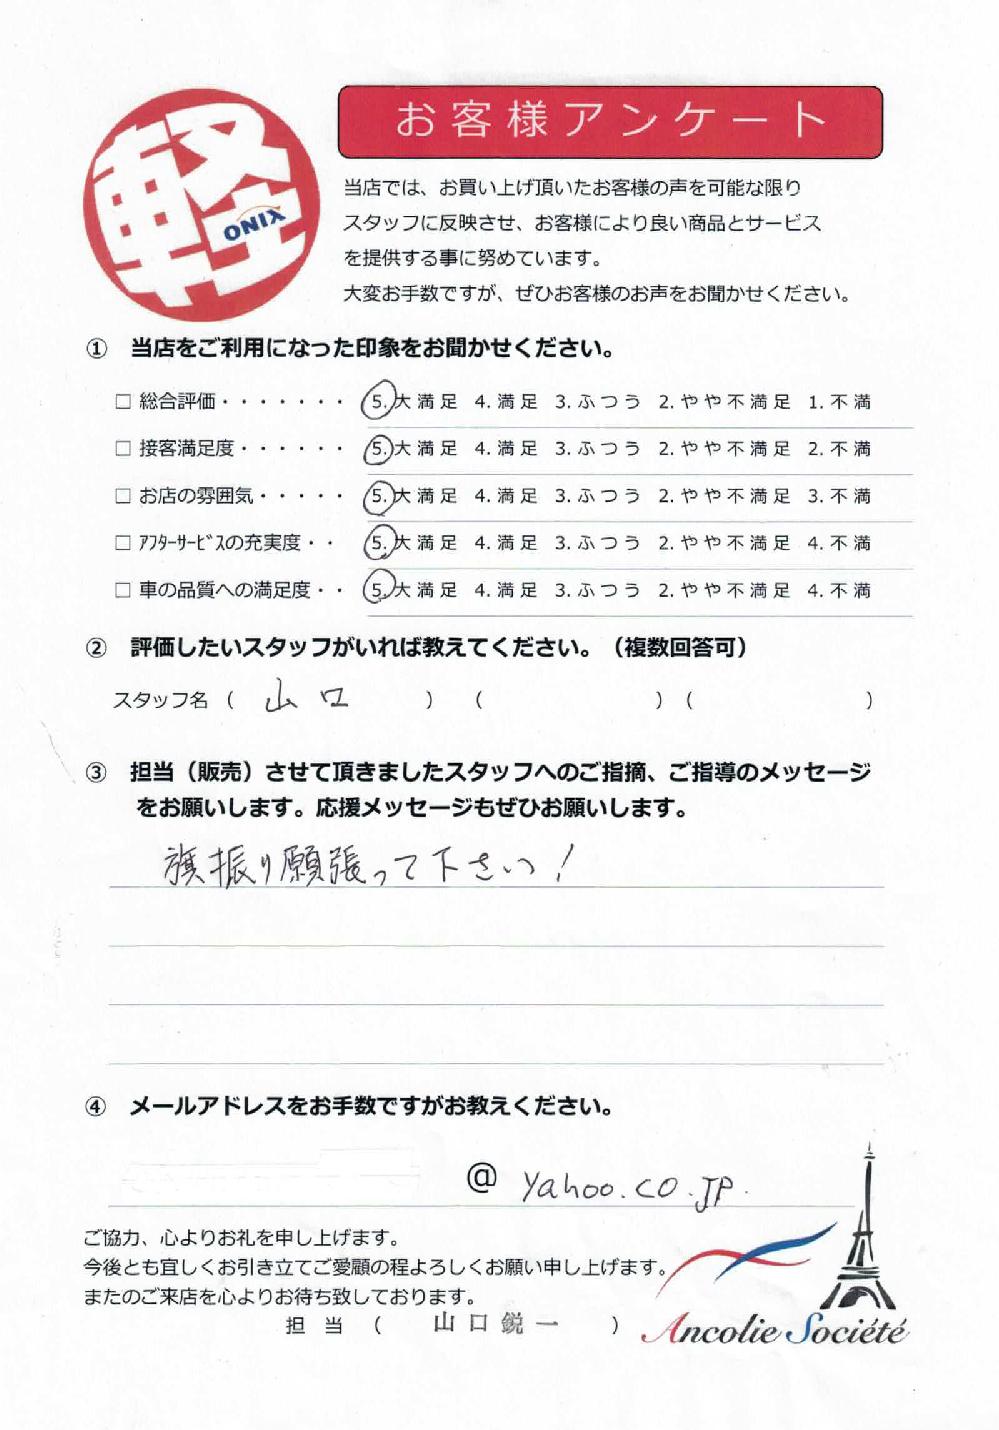 軽
ONIX
お客様アンケート
当店では、お買い上げ頂いたお客様の声を可能な限り
スタッフに反映させ、お客様により良い商品とサービス
を提供する事に努めています。
大変お手数ですが、ぜひお客様のお声をお聞かせください。
① 当店をご利用になった印象をお聞かせください。
□ 総合評価・・・・・・・ 5.大満足 4.満足 3.ふつう 2.やや不満足 1.不満
□ 接客満足度・・・・・・ 5.大満足 4.満足 3.ふつう 2.やや不満足 2.不満
□ お店の雰囲気・・・・・ 5.大満足 4.満足 3.ふつう 2.やや不満足 3.不満
□ ｱﾌﾀｰｻｰﾋﾞｽの充実度・・ 5.大満足 4.満足 3.ふつう 2.やや不満足 4.不満
□ 車の品質への満足度・・ 5.大満足 4.満足 3.ふつう 2.やや不満足 4.不満
② 評価したいスタッフがいれば教えてください。（複数回答可）
スタッフ名（ 山口 ）（ ）（ ）
③ 担当（販売）させて頂きましたスタッフへのご指摘、ご指導のメッセージ
をお願いします。応援メッセージもぜひお願いします。
旗振り願張って下さい！
④ メールアドレスをお手数ですがお教えください。
@ yahoo.co.JP.
ご協力、心よりお礼を申し上げます。
今後とも宜しくお引き立てご愛顧の程よろしくお願い申し上げます。
またのご来店を心よりお待ち致しております。
担当（ 山口鋭一 ）
Ancolie Société